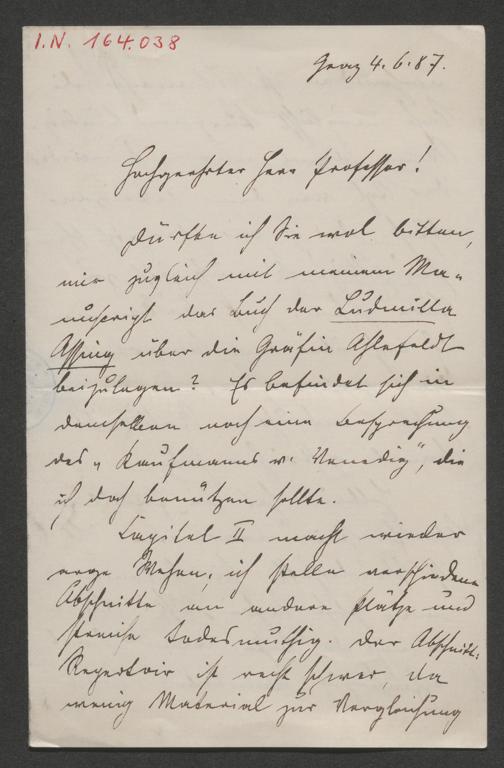 I.N. 164.038
Graz 4.6.87.
Hochgeehrter Herr Professor!
Dürfte ich Sie wol bitten,
mir zugleich mit meinem Ma-
nuscript das Buch der Ludmilla
Assing über die Gräfin Ahlefeldt
beizulegen? Es befindet sich in
demselben noch eine Besprechung
des „Kaufmanns v. Venedig", die
ich doch benützen sollte.
Capitel II macht wieder
arge Wehen; ich stelle verschiedene
Abschnitte an andere Plätze und
streiche todesmuthig. Der Abschnitt:
Repertoir ist recht schwer, da
wenig Material zur Vergleichung